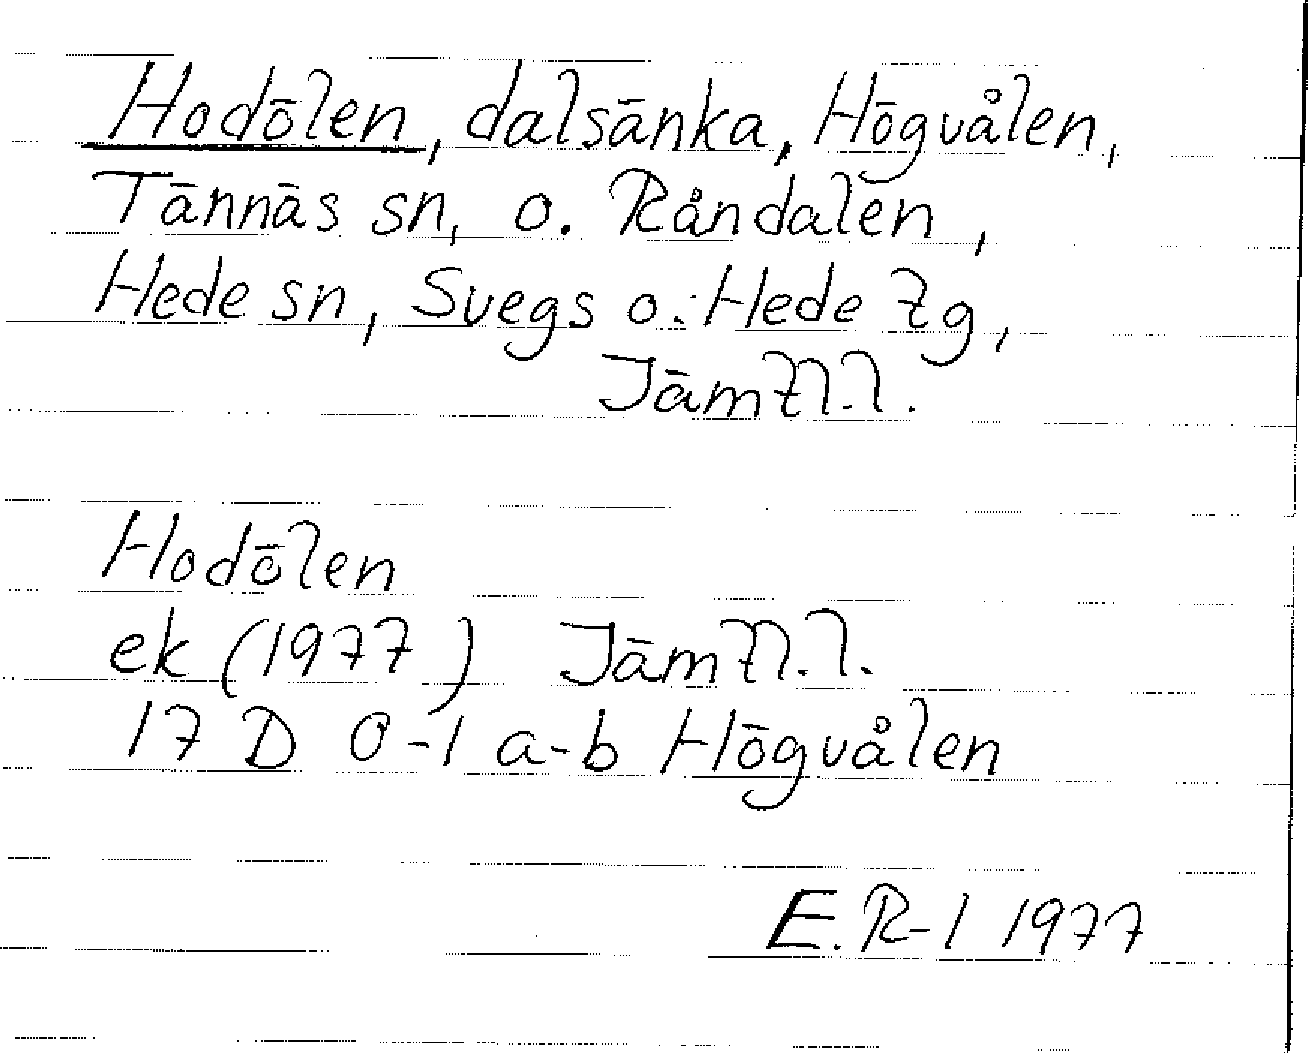 Hodölen, dalsänka, Högvålen,
Tännäs sn, o. Råndalen,
Hede sn, Svegs o. Hede tg,
Jämtl.l.
Hodölen
ek (1977) Jämtl.l.
17 D 0-1 a-b Högvålen
E. R-l 1977